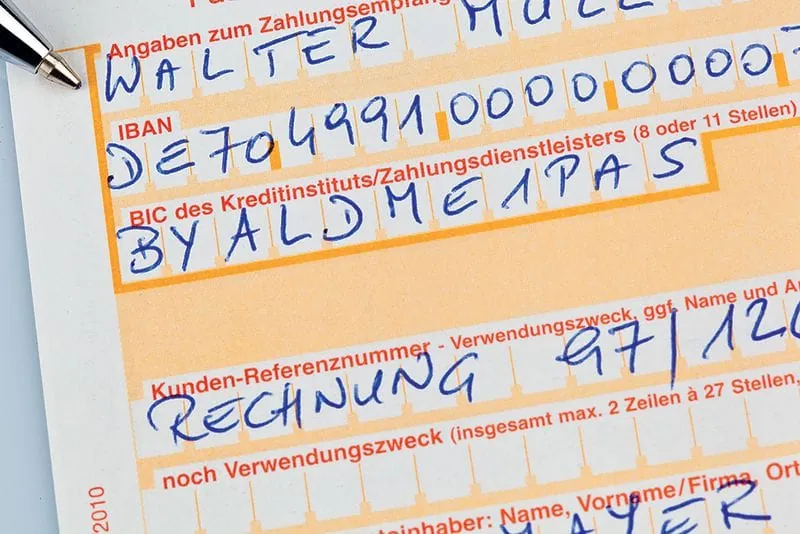 Angaben zum Zahlungsempfäng
WALTER MÜLL
IBAN
DE70 4991 0000 0000 7
BIC des Kreditinstituts/Zahlungsdienstleisters (8 oder 11 Stellen)
BYALDME1PAS
Kunden-Referenznummer - Verwendungszweck, ggf. Name und An
RECHNUNG 97/120
noch Verwendungszweck (insgesamt max. 2 Zeilen à 27 Stellen,
teinhaber: Name, Vorname/Firma, Ort
MAYER
2010